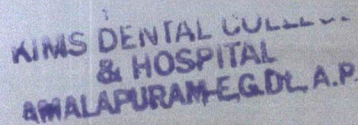 KIMS DENTAL COLLEGE
& HOSPITAL
AMALAPURAM-E.G.Dt., A.P.